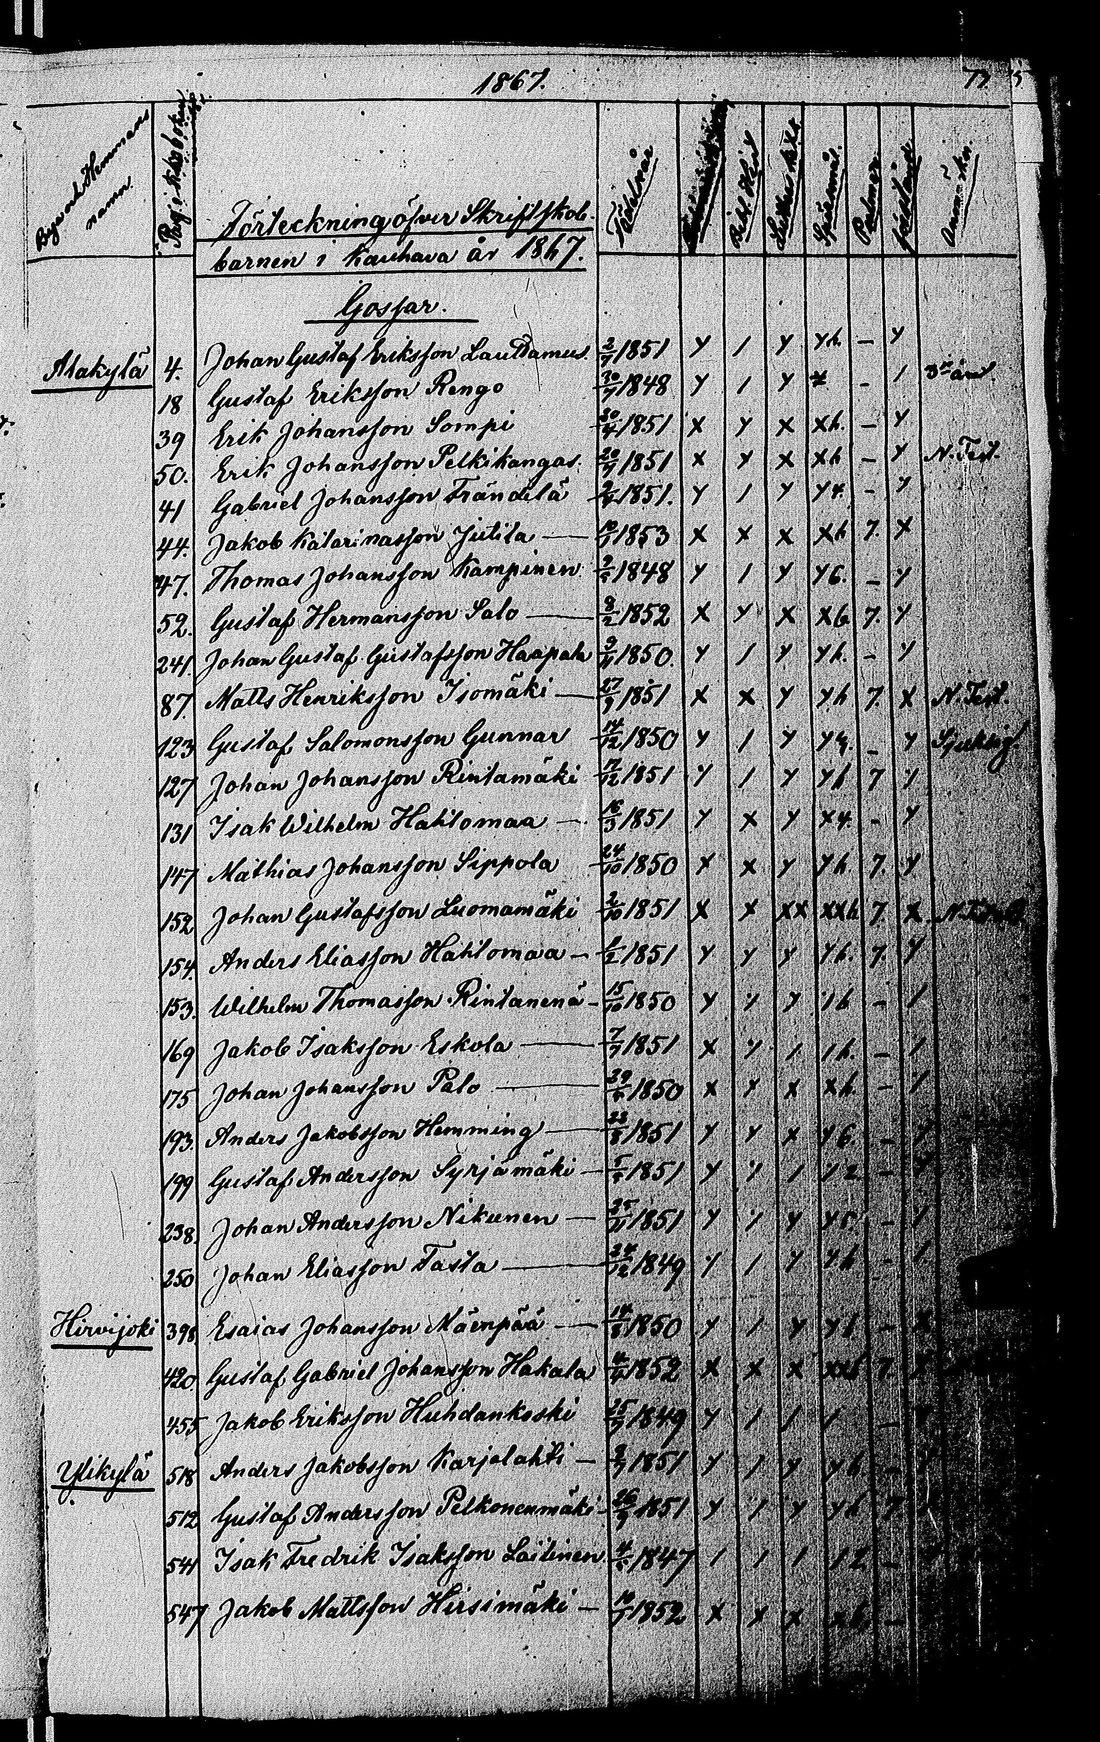 1867.
77.
By och Hemmans namn.
Pag. i K. boken
Förteckning öfver Skriftskol-
barnen i Kauhava år 1867.
Födelseår
Bibl. Hist.
Luthers
Spörsmål.
Psalmer
förstånd
Anmärkn.
Gossar.
Alakylä 4. Johan Gustaf Eriksson Lautamus. 2/7 1851 Y / Y Yh. – Y
18 Gustaf Eriksson Rengo 20/7 1848 Y / Y – /
39 Erik Johansson Sompi 20/4 1851 X Y X Xh. – Y
50. Erik Johansson Pelkikangas. 20/7 1851 X Y X Xh – Y N. Test.
41 Gabriel Johansson Frändilä 1851. Y / Y Y4. – Y
44. Jakob Katarinasson Jutila — 1853 X X X Xh 7. X
47. Thomas Johansson Kampinen 1848 Y / Y Y6. – Y
52. Gustaf Hermansson Salo — 8/2 1852 X Y X X6 7. Y
241. Johan Gustaf Gustafsson Haapala 9/11 1850. Y / Y Yh. – Y
87. Matts Henriksson Isomäki — 27/9 1851 X X Y Yh 7. X N. Test.
123 Gustaf Salomonsson Gunnar 14/12 1850 Y / Y – Y Sjuklig
127 Johan Johansson Rintamäki 17/12 1851 Y / Y Yh 7 Y
131 Isak Wilhelm Hahtomaa — 16/3 1851 Y X Y X4. – Y
147 Mathias Johansson Sippola 24/10 1850 X X Y Yh 7. Y
152 Johan Gustafsson Luomamäki 2/10 1851 X X XX XXh 7. X
154. Anders Eliasson Hahtomaa — 1/2 1851 Y Y Y Yh. 7. Y
153. Wilhelm Thomasson Rintanenä – 15/10 1850 Y / Y /h – /
169 Jakob Isaksson Eskola — 7/7 1851 X Y / /h. – /
175 Johan Johansson Palo — 1850 X X X Xh – Y
193. Anders Jakobsson Hemming — 23/8 1851 Y Y X Y6. – Y
199 Gustaf Andersson Syrjämäki — 1851 Y Y / Y2 –
238. Johan Andersson Nikunen — 25/11 1851 Y / Y Y5. – /
250 Johan Eliasson Tasta — 24/12 1849 Y / Y Yh – /
Hirvijoki 398 Esaias Johansson Mäenpää — 14/8 1850 Y / Y Yh –
420. Gustaf Gabriel Johansson Hakala 1852 X X X 7.
455 Jakob Eriksson Huhdankoski 25/9 1849 Y / / / –
Ylikylä 518 Anders Jakobsson Karjalahti — 1851 Y / Y Yh –
512 Gustaf Andersson Pelkonenmäki – 26/9 1851 Y / Y Yh 7.
541 Isak Fredrik Isaksson Laitinen. 1847 / / / /2 –
547 Jakob Mattsson Hirsimäki — 1852 X X X Xh –